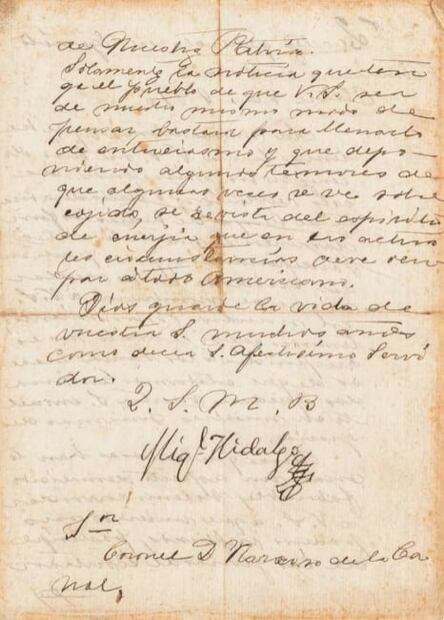 de Nuestra Patria.
Solamente la noticia que ten
ga el pueblo de que V.S. sea
de nuestro mismo modo de
pensar, bastara para llenarlo
de entuciasmo y que depo
niendo algunos temores de
que algunas veces se ve sobre
cojido, se revista del espiritu
de enerjia que en las actua
les circunstancias deve ocu
par átodo Americano.
Dios guarde la vida de
vuestra S. muchos años
como decea S. afectisimo Servi
dor.
Q. S. M. B
Migl. Hidalgo
Sor
Coronel D Narciso de la Ca
nal,